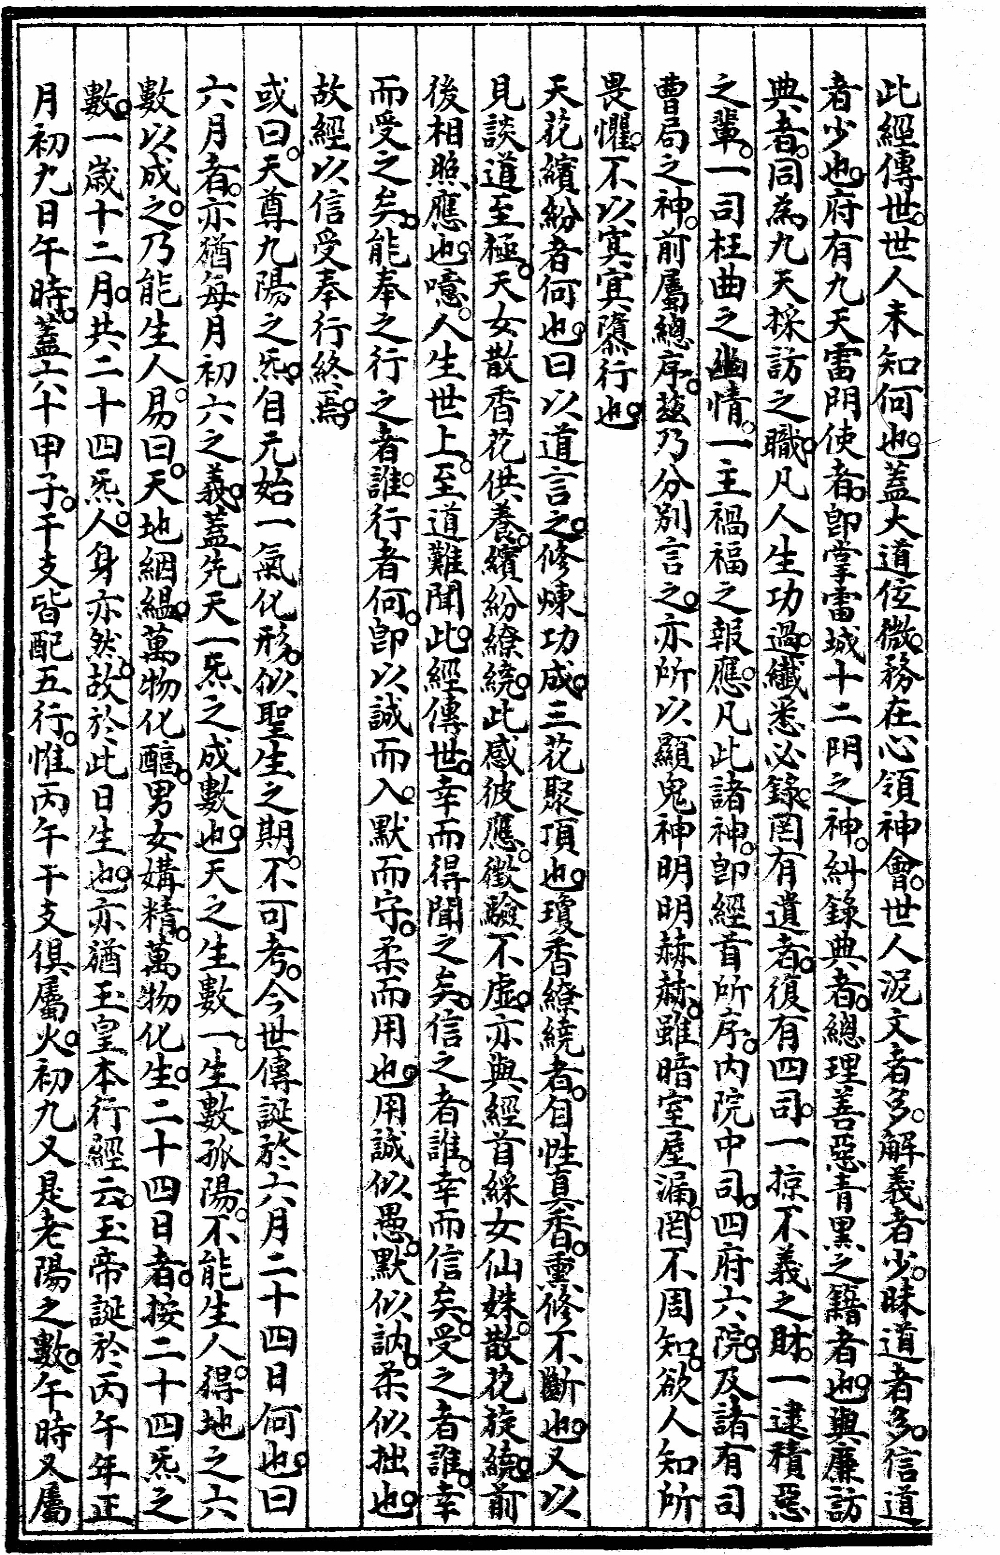 此經傳世。世人未知何也。蓋大道位微。務在心領神會。世人泥文者多。解義者少。昧道者多。信道
者少也。府有九天雷門使者。即掌雷城十二門之神。糾錄典者。總理善惡青黑之籍者也。與廉訪
典者。同為九天採訪之職。凡人生功過。纖悉必錄。罔有遺者。復有四司。一掠不義之財。一逮積惡
之輩。一司枉曲之幽情。一主禍福之報應。凡此諸神。即經首所序。內院中司。四府六院。及諸有司
曹局之神。前屬總序。茲乃分別言之。亦所以顯鬼神明明赫赫。雖暗室屋漏。罔不周知。欲人知所
畏懼。不以冥冥隳行也。
天花繽紛者何也。曰以道言之。修煉功成。三花聚頂也。瓊香繚繞者。自性真香。熏修不斷也。又以
見談道至極。天女散香花供養。繽紛繚繞。此感彼應。徵驗不虛。亦與經首綵女仙姝。散花旋繞。前
後相照應也。噫。人生世上。至道難聞。此經傳世。幸而得聞之矣。信之者誰。幸而信矣。受之者誰。幸
而受之矣。能奉之行之者誰。行者何。即以誠而入。默而守。柔而用也。用誠似愚。默似訥。柔似拙也。
故經以信受奉行終焉。
或曰。天尊九陽之炁。自元始一氣化形。似聖生之期。不可考。今世傳誕於六月二十四日何也。曰
六月者。亦猶每月初六之義。蓋先天一炁之成數也。天之生數一。生數孤陽。不能生人。得地之六
數以成之。乃能生人。易曰。天地絪縕。萬物化醕。男女媾精。萬物化生。二十四日者。按二十四炁之
數。一歲十二月。共二十四炁。人身亦然。故於此日生也。亦猶玉皇本行經云。玉帝誕於丙午年正
月初九日午時。蓋六十甲子。干支皆配五行。惟丙午干支俱屬火。初九又是老陽之數。午時又屬